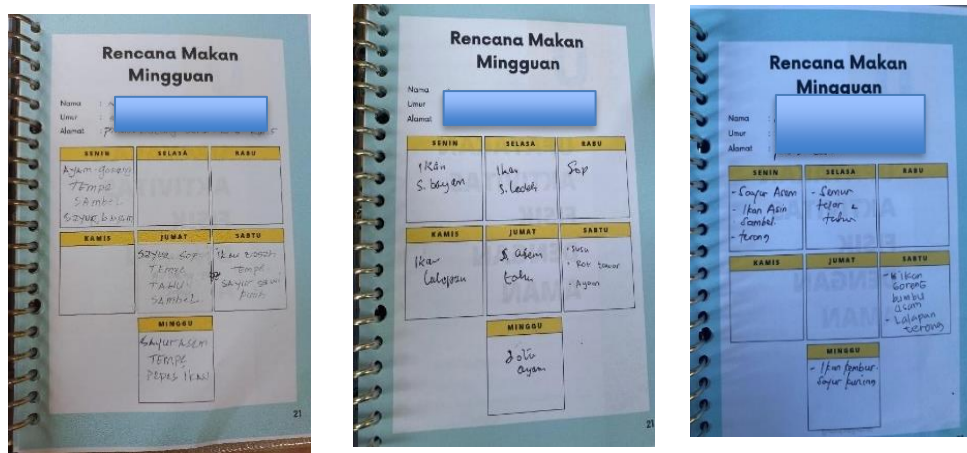 Rencana Makan
Mingguan
Nama :
Umur :
Alamat :
SENIN
Ayam goreng
Tempe
Sambel
Sayur bayam
SELASA
RABU
KAMIS
JUMAT
Sayur Sop
Tempe
Tahu
Sambel
SABTU
Ikan
Tempe
Sayur sawi
MINGGU
Sayur Asem
Tempe
Pepes Ikan
21
Rencana Makan
Mingguan
Nama :
Umur
Alamat
SENIN
Ikan
S. bayam
SELASA
Ikan
S. Lodeh
RABU
Sop
KAMIS
Ikan
JUMAT
S. asem
tahu
SABTU
• Susu
• Roti tawar
• Ayam
MINGGU
Soto
ayam
21
Rencana Makan
Mingguan
Nama :
Umur :
Alamat :
SENIN
- Sayur Asem
- Ikan Asin
Sambel
- terong
SELASA
- Semur
telor &
tahu
RABU
KAMIS
JUMAT
SABTU
- Ikan
Goreng
bumbu
asam
- Lalapan
terong
MINGGU
- Ikan
Sayur kuning